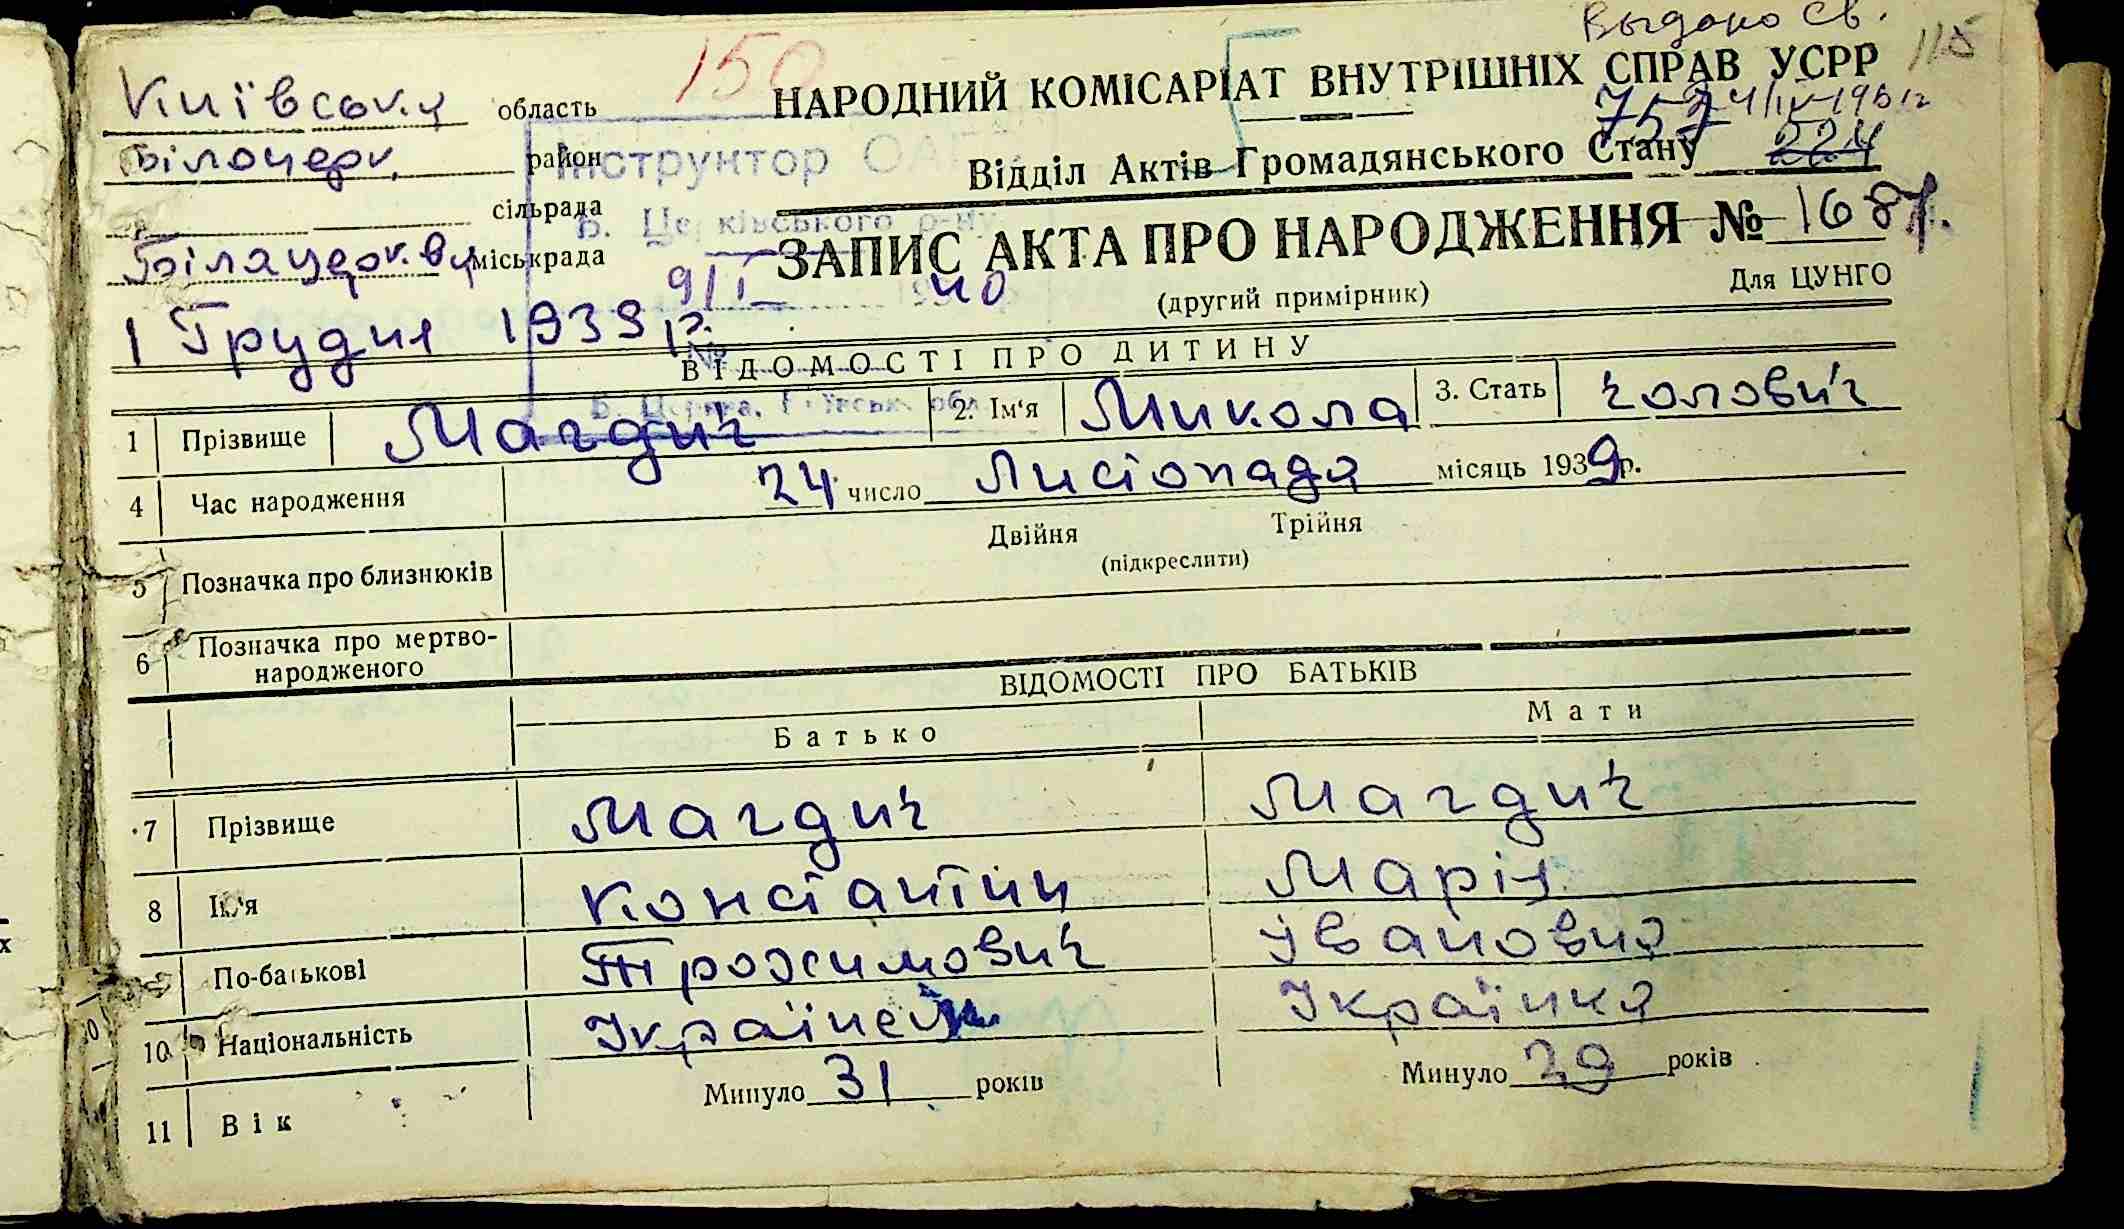 Выдано Св.
115
150
Київську область
НАРОДНИЙ КОМІСАРІАТ ВНУТРІШНІХ СПРАВ УСРР
757
Білоцерк. район
Інструктор
Відділ Актів Громадянського Стану
224
сільрада
Б. Церківського р-ну
ЗАПИС АКТА ПРО НАРОДЖЕННЯ № 1687.
Білацерк.вц міськрада
9/I 40
(другий примірник)
Для ЦУНГО
1 Грудня 1939 р.
ВІДОМОСТІ ПРО ДИТИНУ
1 Прізвище Магдич 2. Ім'я Микола 3. Стать чолович
4 Час народження 24 число Листопада місяць 1939 р.
Двійня Трійня
5 Позначка про близнюків
(підкреслити)
6 Позначка про мертвонародженого
ВІДОМОСТІ ПРО БАТЬКІВ
Батько Мати
7 Прізвище Магдич Магдич
8 Ім'я Константин Марія
По-батькові Трохимович Івановна
10 Національність Українець Українка
11 Вік Минуло 31 років Минуло 29 років